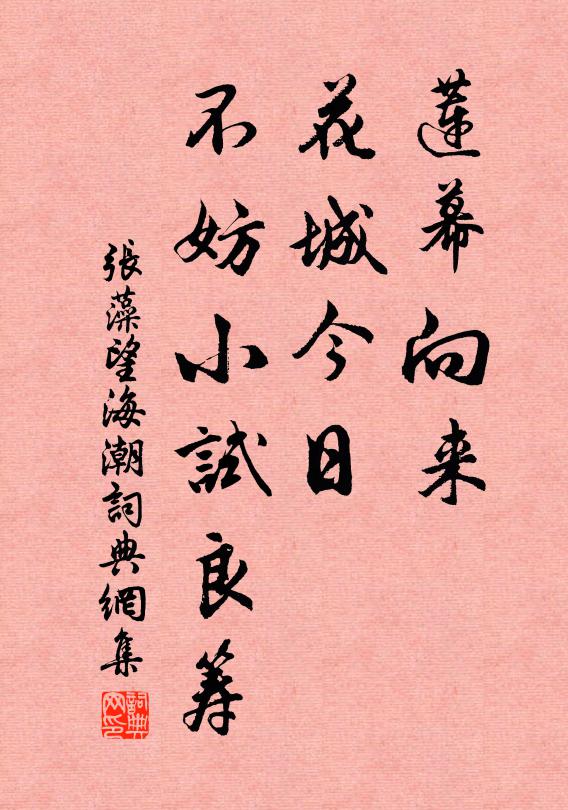 蓮幕向来
花城今日
不妨小試良筹
張藻望海潮詞典網集
詞典网印